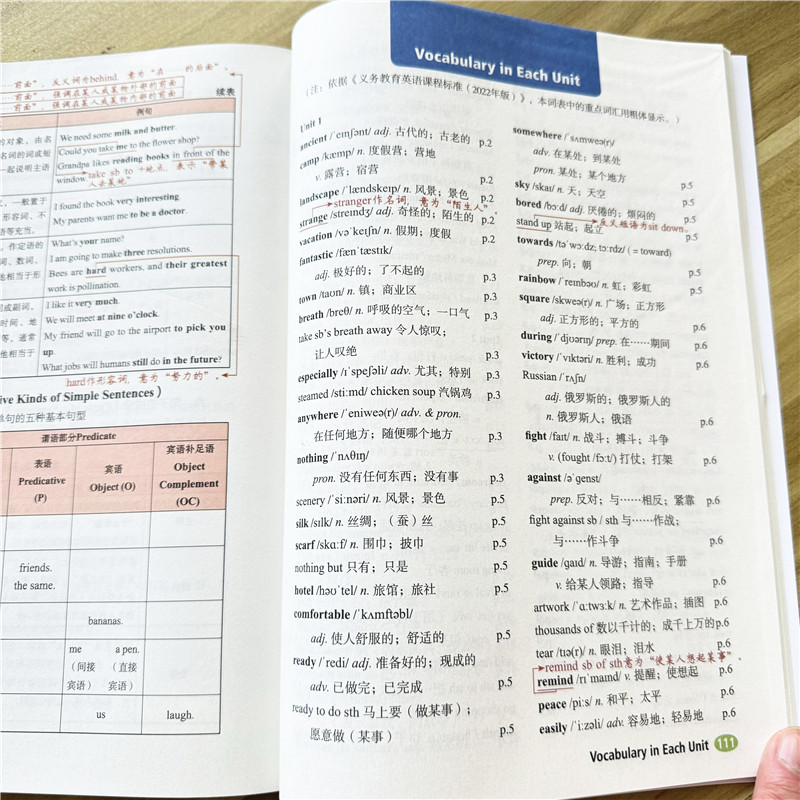 前面”，反义词为behind，意为“在……的后面”。
前面”，强调在某人或某物外部的前面
前面”，强调在某人或某物内部的前面
续表
例句
的对象，由名
名词的词或短
一起说明主语
We need some milk and butter.
Could you take me to the flower shop?
Grandpa likes reading books in front of the
window.
take sb to +地点，表示“带某
人去某地”
一般置于
形容词、不
语等充当。
I found the book very interesting.
My parents want me to be a doctor.
作定语的
词、数词、
他相当于形
What's your name?
I am going to make three resolutions.
Bees are hard workers, and their greatest
work is pollination.
词或副词。
时间、地
等。通常
他相当于
I like it very much.
We will meet at nine o'clock.
My friend will go to the airport to pick you
up.
What jobs will humans still do in the future?
hard作形容词，意为“努力的”。
ive Kinds of Simple Sentences）
单句的五种基本句型
谓语部分Predicate
表语
Predicative
(P)
宾语
Object (O)
宾语补足语
Object
Complement
(OC)
friends.
the same.
bananas.
me a pen.
（间接 （直接
宾语） 宾语）
us laugh.
Vocabulary in Each Unit
（注：依据《义务教育英语课程标准（2022年版）》，本词表中的重点词汇用粗体显示。）
Unit 1
ancient /ˈeɪnʃənt/ adj. 古代的；古老的 p.2
camp /kæmp/ n. 度假营；营地
v. 露营；宿营 p.2
landscape /ˈlændskeɪp/ n. 风景；景色 p.2
stranger作名词，意为“陌生人”。
strange /streɪndʒ/ adj. 奇怪的；陌生的 p.2
vacation /vəˈkeɪʃn/ n. 假期；度假 p.2
fantastic /fænˈtæstɪk/
adj. 极好的；了不起的 p.3
town /taʊn/ n. 镇；商业区 p.3
breath /breθ/ n. 呼吸的空气；一口气 p.3
take sb's breath away 令人惊叹；
让人叹绝 p.3
especially /ɪˈspeʃəli/ adv. 尤其；特别 p.3
steamed /stiːmd/ chicken soup 汽锅鸡 p.3
anywhere /ˈeniweə(r)/ adv. & pron.
在任何地方；随便哪个地方 p.3
nothing /ˈnʌθɪŋ/
pron. 没有任何东西；没有事 p.3
scenery /ˈsiːnəri/ n. 风景；景色 p.5
silk /sɪlk/ n. 丝绸；（蚕）丝 p.5
scarf /skɑːf/ n. 围巾；披巾 p.5
nothing but 只有；只是 p.5
hotel /həʊˈtel/ n. 旅馆；旅社 p.5
comfortable /ˈkʌmftəbl/
adj. 使人舒服的；舒适的 p.5
ready /ˈredi/ adj. 准备好的；现成的
adv. 已做完；已完成 p.5
ready to do sth 马上要（做某事）；
愿意做（某事） p.5
somewhere /ˈsʌmweə(r)/
adv. 在某处；到某处
pron. 某处；某个地方 p.5
sky /skaɪ/ n. 天；天空 p.5
bored /bɔːd/ adj. 厌倦的；烦闷的 p.5
反义短语为sit down。
stand up 站起；起立 p.5
towards /təˈwɔːdz; tɔːrdz/ ( = toward)
prep. 向；朝 p.5
rainbow /ˈreɪnbəʊ/ n. 虹；彩虹 p.5
square /skweə(r)/ n. 广场；正方形
adj. 正方形的；平方的 p.6
during /ˈdjʊərɪŋ/ prep. 在……期间 p.6
victory /ˈvɪktəri/ n. 胜利；成功 p.6
Russian /ˈrʌʃn/
adj. 俄罗斯的；俄罗斯人的
n. 俄罗斯人；俄语 p.6
fight /faɪt/ n. 战斗；搏斗；斗争
v. (fought /fɔːt/) 打仗；打架 p.6
against /əˈɡenst/
prep. 反对；与……相反；紧靠 p.6
fight against sb / sth 与……作战；
与……作斗争 p.6
guide /ɡaɪd/ n. 导游；指南；手册
v. 给某人领路；指导 p.6
artwork /ˈɑːtwɜːk/ n. 艺术作品；插图 p.6
thousands of 数以千计的；成千上万的 p.6
tear /tɪə(r)/ n. 眼泪；泪水 p.6
remind sb of sth意为“使某人想起某事”。
remind /rɪˈmaɪnd/ v. 提醒；使想起 p.6
peace /piːs/ n. 和平；太平 p.6
easily /ˈiːzəli/ adv. 容易地；轻易地 p.6
Vocabulary in Each Unit 111